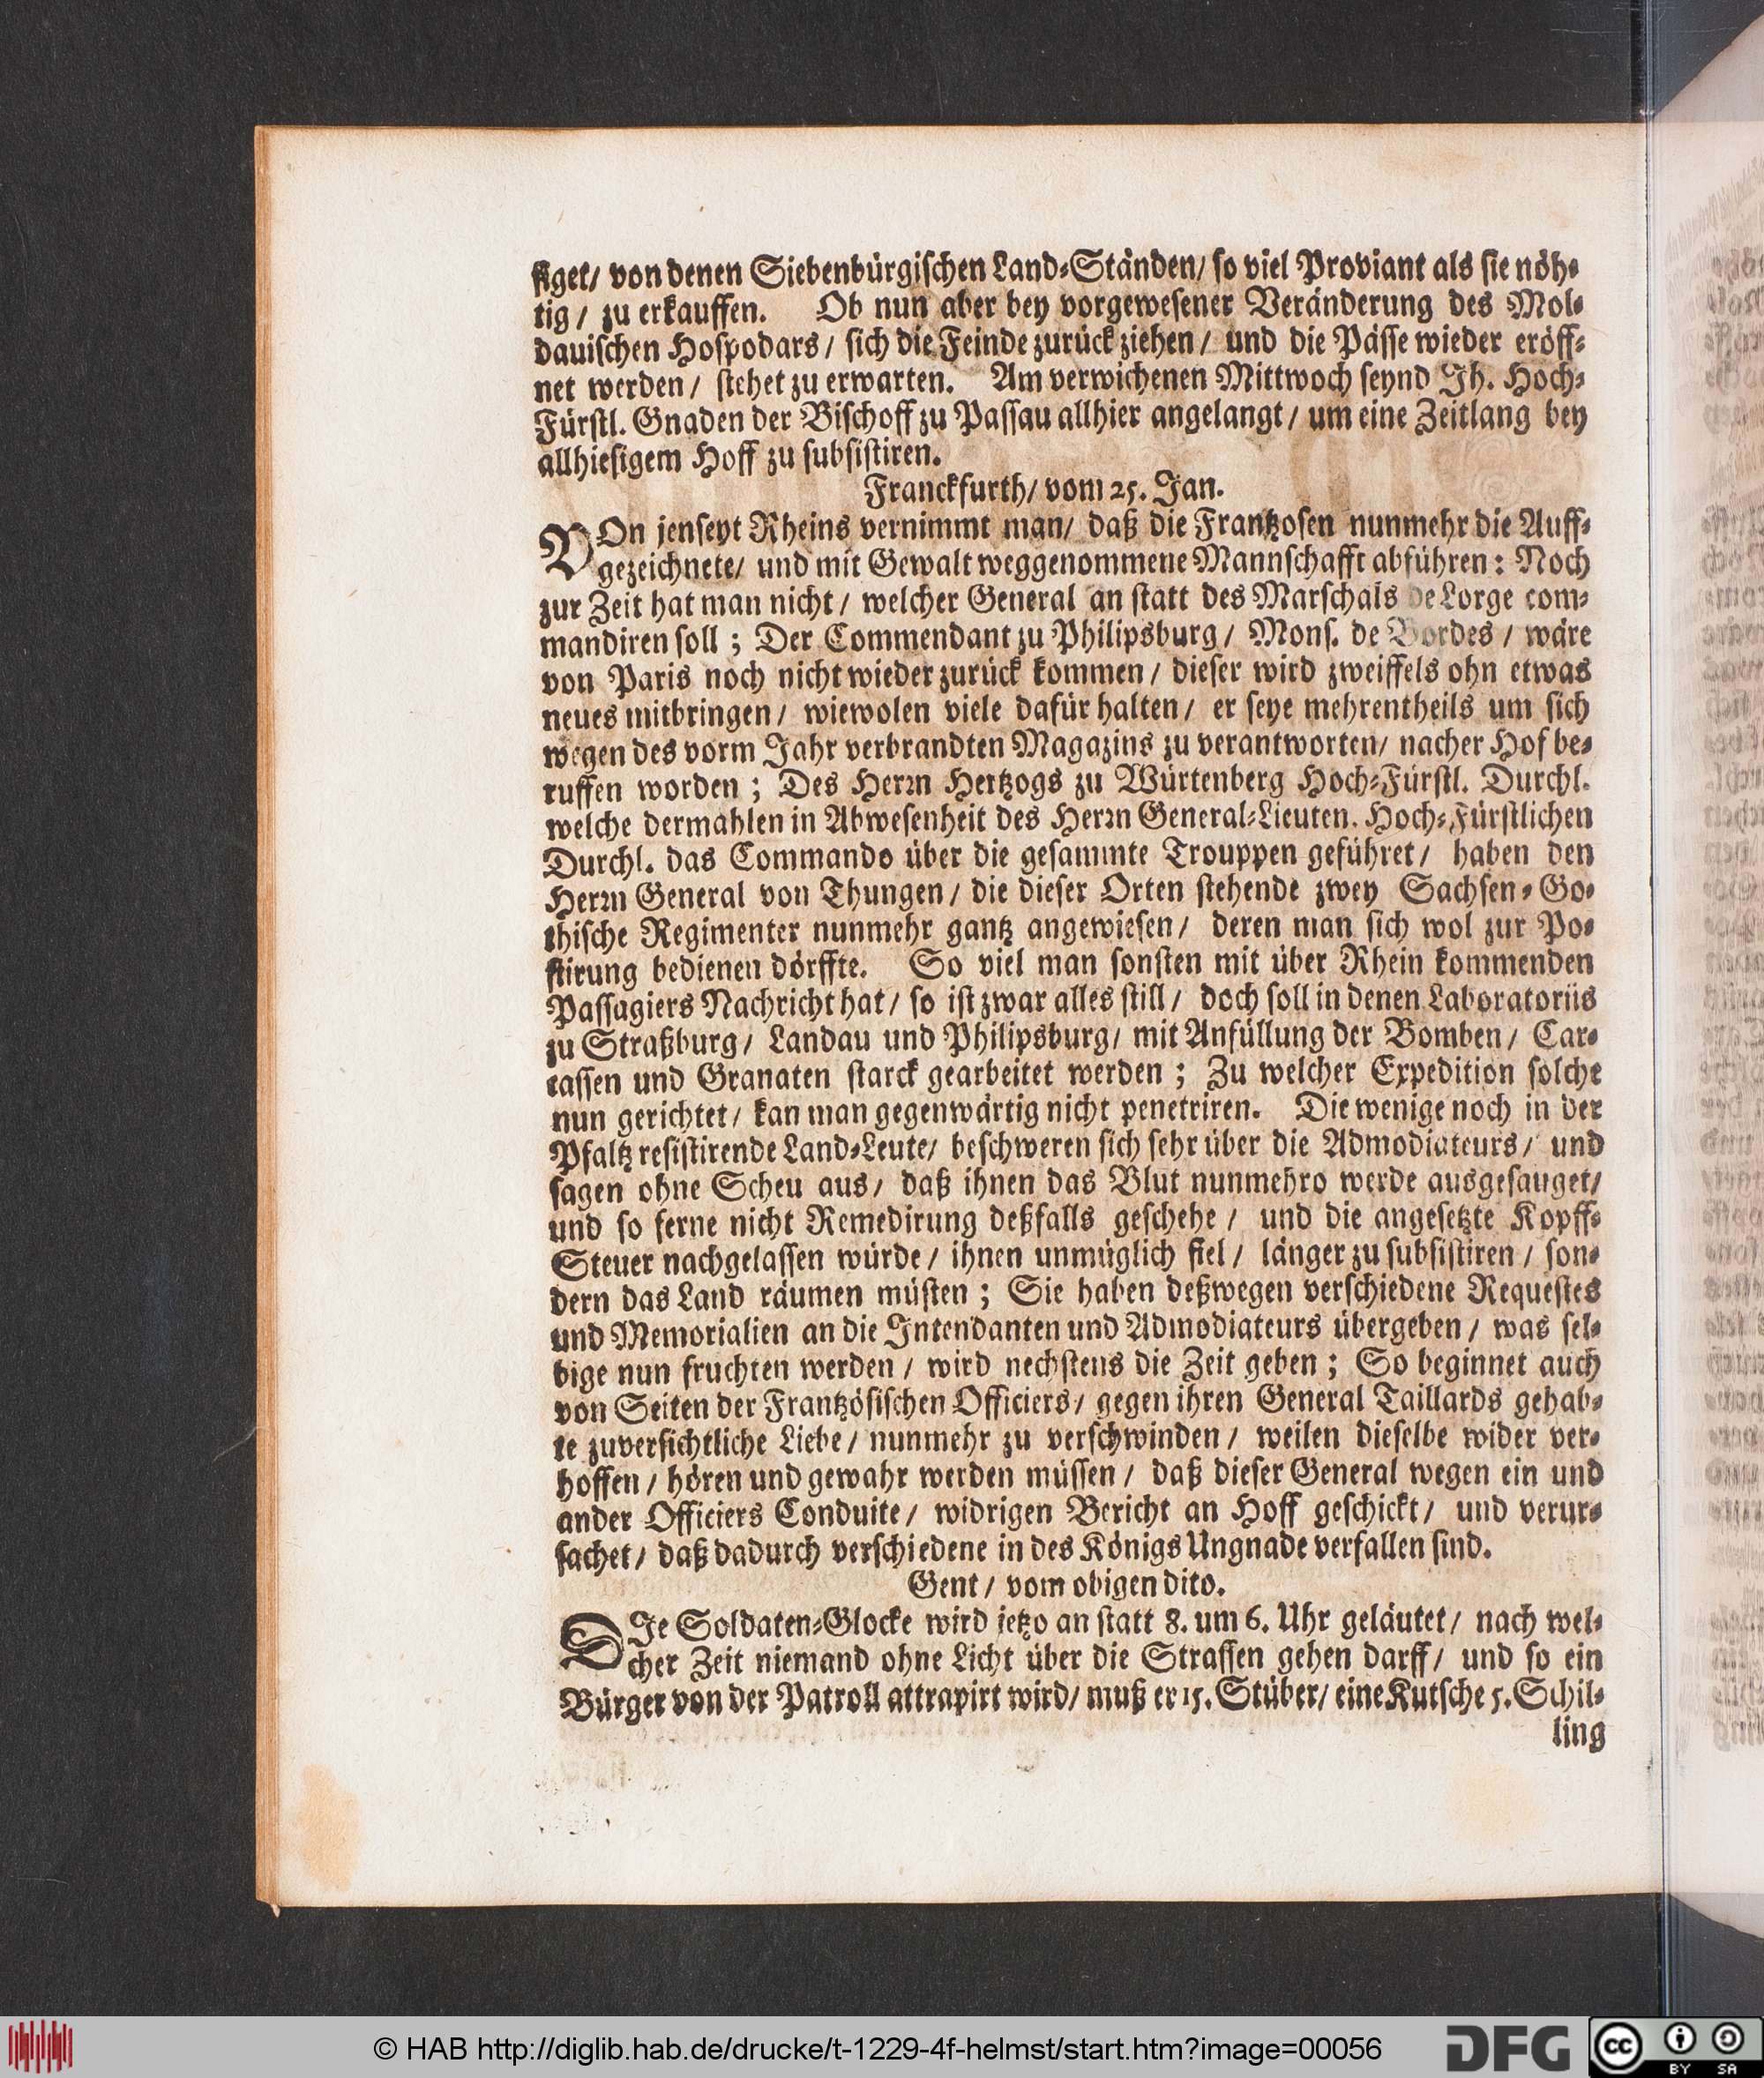 siget/ von denen Siebenbürgischen Land-Ständen/ so viel Proviant als sie nöh-
tig / zu erkauffen. Ob nun aber bey vorgewesener Veränderung des Mol-
dauischen Hospodars / sich die Feinde zurück ziehen / und die Pässe wieder eröff-
net werden / stehet zu erwarten. Am verwichenen Mittwoch seynd Ih. Hoch-
Fürstl. Gnaden der Bischoff zu Passau allhier angelangt / um eine Zeitlang bey
allhiesigem Hoff zu subsistiren.
Franckfurth/ vom 25. Jan.
VOn jenseyt Rheins vernimmt man/ daß die Frantzosen nunmehr die Auff-
gezeichnete/ und mit Gewalt weggenommene Mannschafft abführen: Noch
zur Zeit hat man nicht / welcher General an statt des Marschals de Lorge com-
mandiren soll ; Der Commendant zu Philipsburg / Mons. de Bordes / wäre
von Paris noch nicht wieder zurück kommen / dieser wird zweiffels ohn etwas
neues mitbringen / wiewolen viele dafür halten / er seye mehrentheils um sich
wegen des vorm Jahr verbrandten Magazins zu verantworten/ nacher Hof be-
ruffen worden ; Des Herrn Hertzogs zu Würtenberg Hoch-Fürstl. Durchl.
welche dermahlen in Abwesenheit des Herrn General-Lieuten. Hoch-Fürstlichen
Durchl. das Commando über die gesammte Trouppen geführet / haben den
Herrn General von Thungen / die dieser Orten stehende zwey Sachsen-Go-
thische Regimenter nunmehr gantz angewiesen / deren man sich wol zur Po-
stirung bedienen dörffte. So viel man sonsten mit über Rhein kommenden
Passagiers Nachricht hat / so ist zwar alles still / doch soll in denen Laboratoriis
zu Straßburg / Landau und Philipsburg / mit Anfüllung der Bomben / Car-
cassen und Granaten starck gearbeitet werden ; Zu welcher Expedition solche
nun gerichtet / kan man gegenwärtig nicht penetriren. Die wenige noch in der
Pfaltz resistirende Land-Leute/ beschweren sich sehr über die Admodiateurs / und
sagen ohne Scheu aus / daß ihnen das Blut nunmehro werde ausgesauget/
und so ferne nicht Remedirung deßfalls geschehe / und die angesetzte Kopff-
Steuer nachgelassen würde / ihnen unmüglich fiel / länger zu subsistiren / son-
dern das Land räumen müsten ; Sie haben deßwegen verschiedene Requestes
und Memorialien an die Intendanten und Admodiateurs übergeben / was sel-
bige nun fruchten werden / wird nechstens die Zeit geben ; So beginnet auch
von Seiten der Frantzösischen Officiers / gegen ihren General Taillards gehab-
te zuversichtliche Liebe / nunmehr zu verschwinden / weilen dieselbe wider ver-
hoffen / hören und gewahr werden müssen / daß dieser General wegen ein und
ander Officiers Conduite / widrigen Bericht an Hoff geschickt / und verur-
sachet / daß dadurch verschiedene in des Königs Ungnade verfallen sind.
Gent / vom obigen dito.
DIe Soldaten-Glocke wird jetzo an statt 8. um 6. Uhr geläutet / nach wel-
cher Zeit niemand ohne Licht über die Strassen gehen darff / und so ein
Bürger von der Patroll attrapirt wird/ muß er 15. Stüber/ eine Kutsche 5. Schil-
ling
© HAB http://diglib.hab.de/drucke/t-1229-4f-helmst/start.htm?image=00056
DFG
cc BY SA